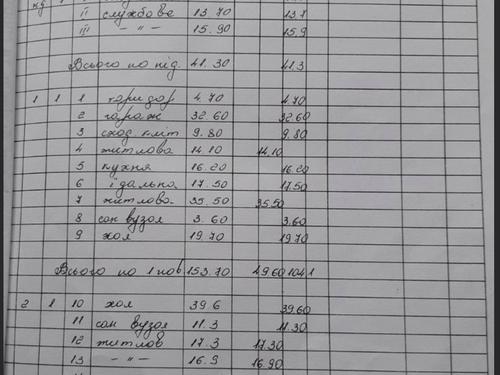 під
II службове 13.70 13.7
III —"— 15.90 15.9
Всього по під. 41.30 41.3
1 1 1 коридор 4.70 4.70
2 гараж 32.60 32.60
3 сход кліт 9.80 9.80
4 житлова 14.10 14.10
5 кухня 16.20 16.20
6 їдальна 17.50 17.50
7 житлова 35.50 35.50
8 сан вузол 3.60 3.60
9 хол 19.70 19.70
Всього по 1 пов 153.70 49.60 104.1
2 1 10 хол 39.6 39.60
11 сан вузол 11.3 11.30
12 житлов 17.3 17.30
13 —"— 16.9 16.90